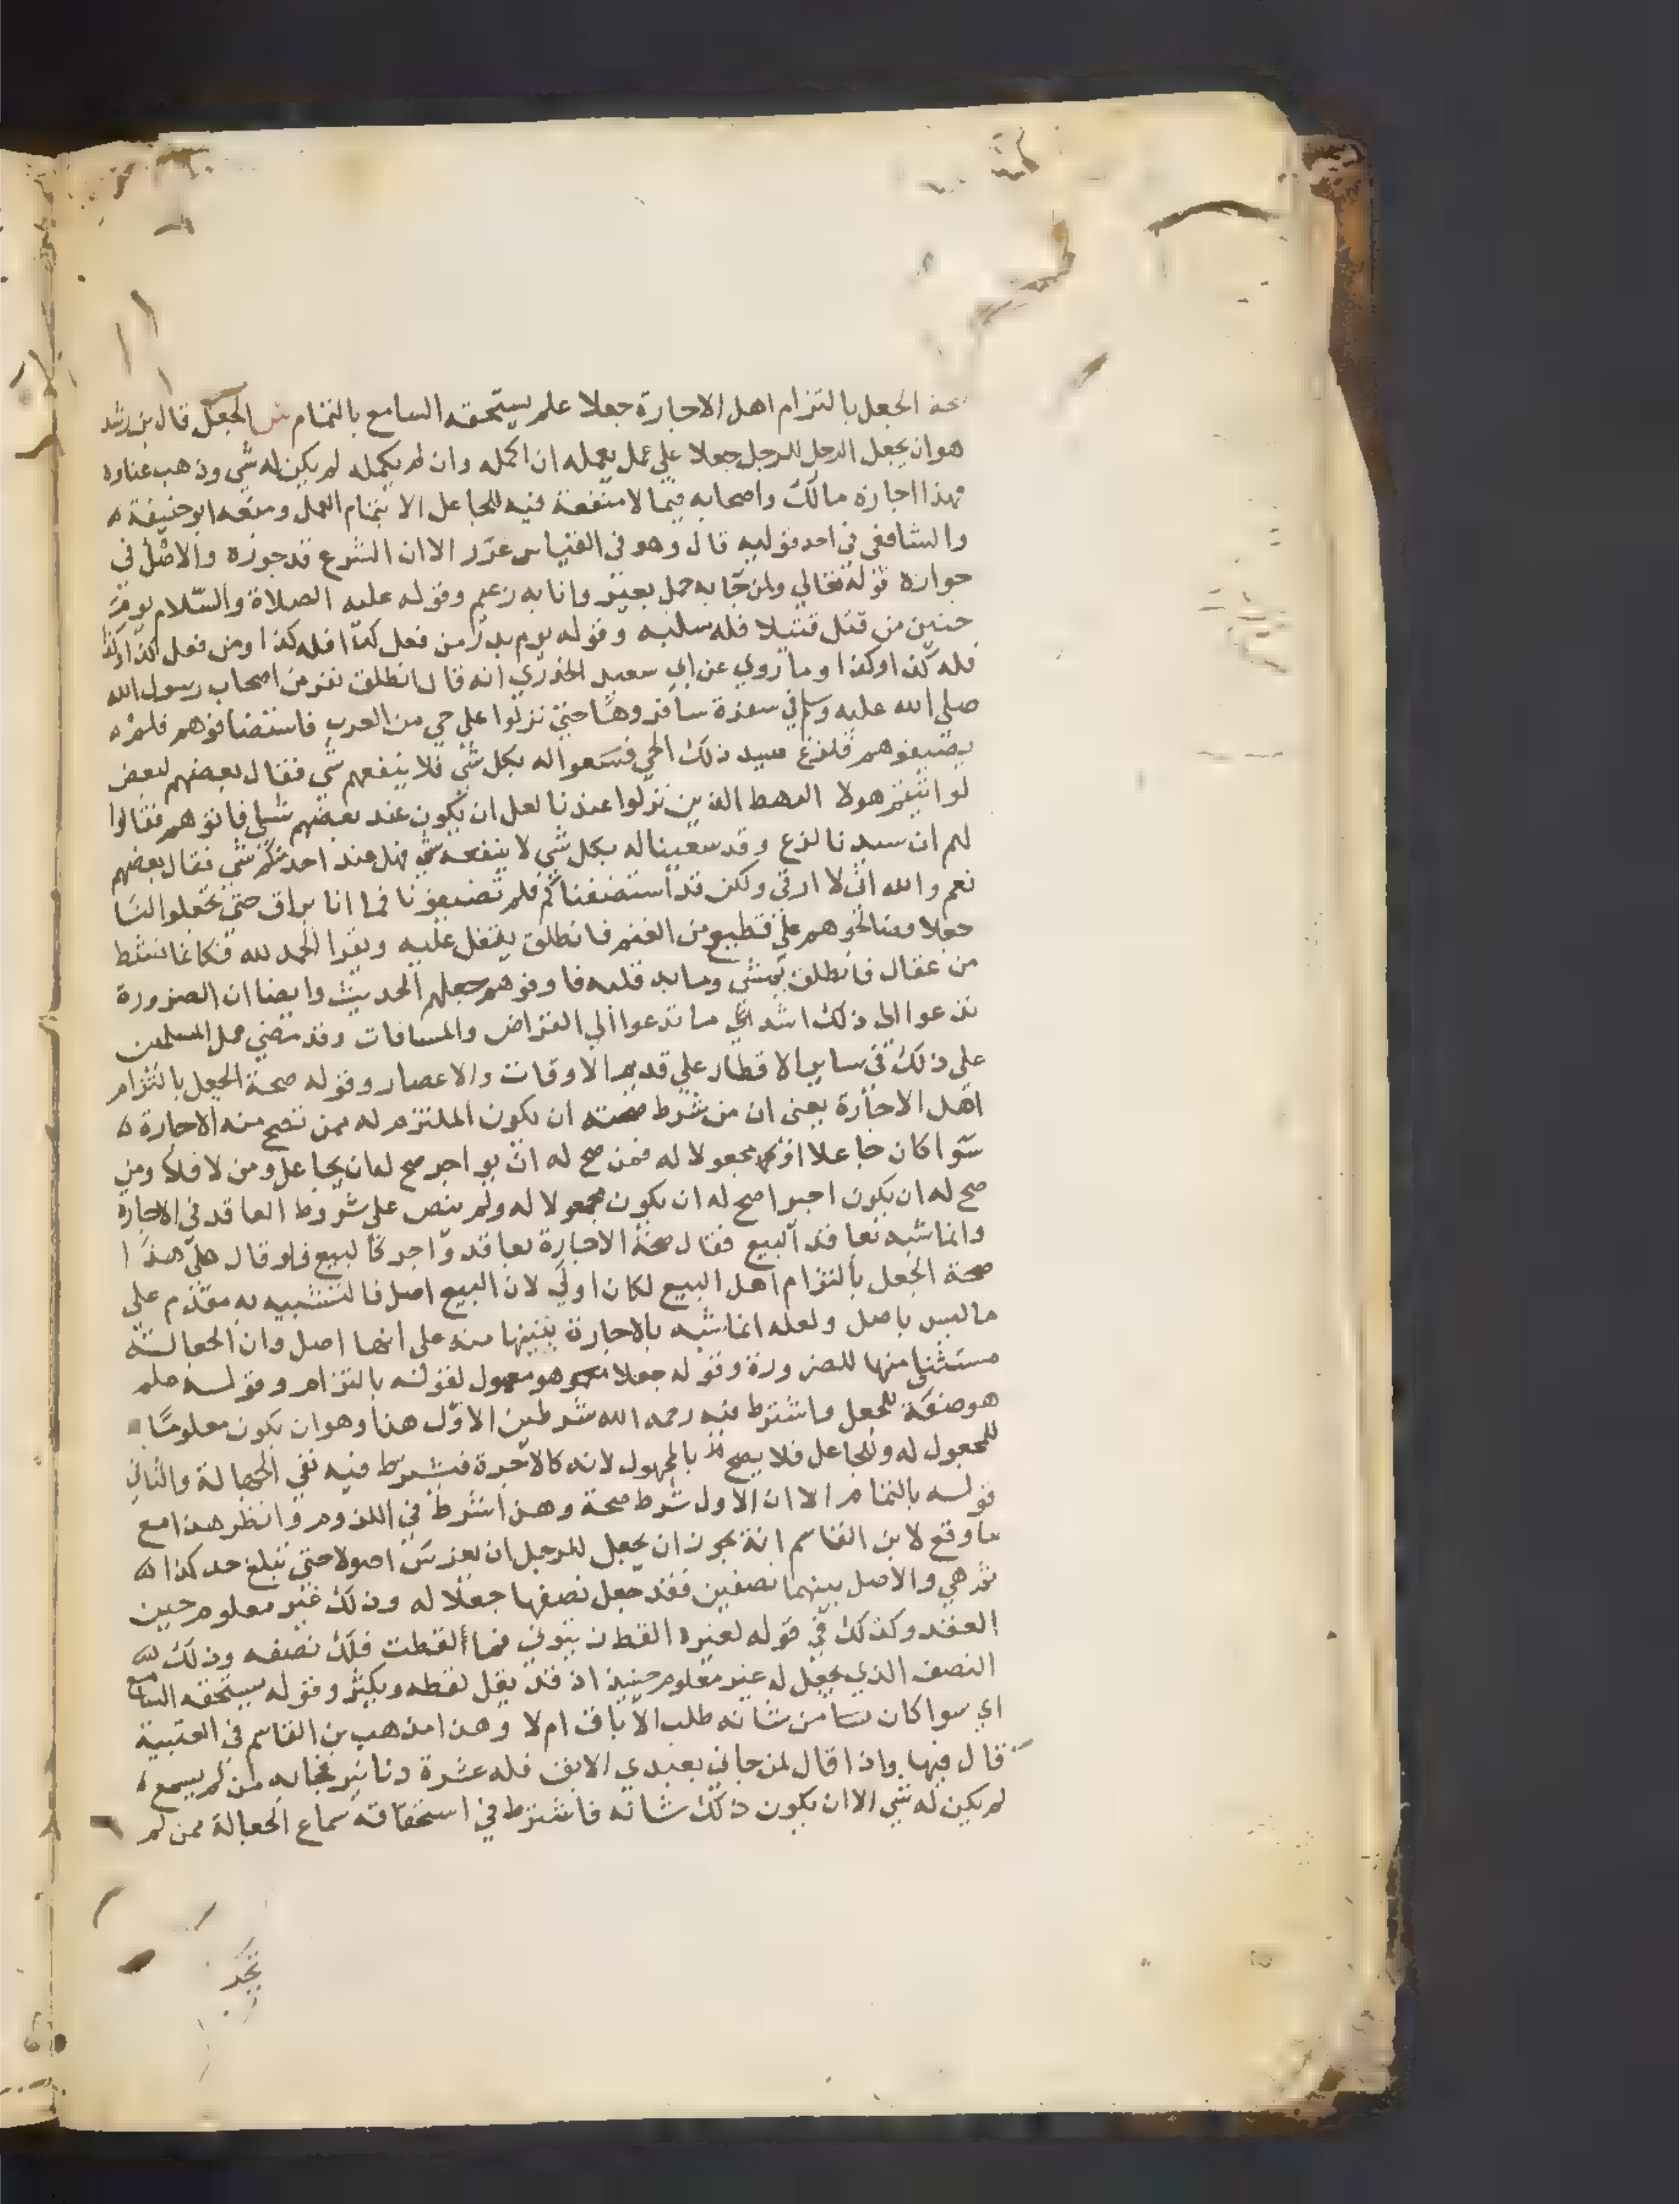 صحة الجعل بالتزام اهل الاجارة جعلا علم يستحقه السامع بالتمام ش الجعل قال بن رشد
هو ان يجعل الرجل للرجل جعلا على عمل يعمله ان اكمله وان لم يكمله لم يكن له شي وذهب عناوه
فهذا اجازه مالك واصحابه فيما لا منفعة فيه للجاعل الا بتمام العمل ومنعه ابو حنيفة
والشافعي في احد قوليه قال وهو في القياس غرر الا ان الشرع قد جوزه والاصل في
جوازه قوله تعالي ولمن جا به حمل بعير وانا به زعيم وقوله عليه الصلاة والسلام يوم
حنين من قتل قتيلا فله سلبه وقوله يوم بدر من فعل كذا فله كذا ومن فعل كذا وكذا
فله كذا وكذا وما روي عن ابي سعيد الخدري انه قال انطلق نفر من اصحاب رسول الله
صلي الله عليه وسلم في سفرة سافروها حتي نزلوا علي حي من العرب فاستضافوهم فلم
يضيفوهم فلدغ سيد ذلك الحي فسعوا له بكل شي فلا ينفعهم شي فقال بعضهم لبعض
لو اتيتم هولا الرهط الذين نزلوا عندنا لعل ان يكون عند بعضهم شي فاتوهم فقالوا
لهم ان سيدنا لدغ وقد سعينا له بكل شي لا ينفعه شي فهل عند احد منكم شي فقال بعضهم
نعم والله اني لا ارقي ولكن قد استضفناكم فلم تضيفونا فما انا براق حتي تجعلوا لنا
جعلا فصالحوهم علي قطيع من الغنم فانطلق يتفل عليه ويقرا الحمد لله فكانما نشط
من عقال فانطلق يمشي وما به قلبه فاوفوهم جعلهم الحديث وايضا ان الضرورة
تدعوا الي ذلك اشد مما تدعوا الي القراض والمساقات وقد مضي عمل المسلمين
علي ذلك في ساير الاقطار علي قديم الاوقات والاعصار وقوله صحة الجعل بالتزام
اهل الاجارة يعني ان من شرط صحته ان يكون الملتزم له ممن تصح منه الاجارة
سوا كان جاعلا او مجعولا له فمن صح له ان يواجر صح له ان يجاعل ومن لا فلا ومن
صح له ان يكون اجيرا صح له ان يكون مجعولا له ولم ينص علي شروط العاقد في الاجارة
وانما شبه تعاقد البيع فقال صحة الاجارة بعاقد واجر كالبيع فلو قال هنا
صحة الجعل بالتزام اهل البيع لكان اولي لان البيع اصل فالتشبيه به مقدم علي
ما ليس باصل ولعله انما شبه بالاجارة تنبيها منه علي انها اصل وان الجعالة
مستثنا منها للضرورة وقوله جعلا هو معمول لقوله بالتزام وقوله علم
هو صفة للجعل واشترط فيه رحمه الله شرطين الاول هذا وهو ان يكون معلوما
للمجعول له وللجاعل فلا يصح بالمجهول لانه كالاجرة فيشترط فيه نفي الجهالة والثاني
قوله بالتمام الا ان الاول شرط صحة وهذا شرط في اللزوم وانظر هذا مع
ما وقع لابن القاسم انه يجوز ان يجعل للرجل ان يغرس اصولا حتي تبلغ حد كذا
ثم هي والاصل بينهما نصفين فقد جعل نصفها جعلا له وذلك غير معلوم حين
العقد وكذلك في قوله لغيره القط زيتوني فما القطت فلك نصفه وذلك
النصف الذي يجعل له غير معلوم حينيذ اذ قد يقل لقطه ويكثر وقوله يستحقه السامع
اي سوا كان من شانه طلب الاباق ام لا وهذا مذهب بن القاسم في العتبية
قال فيها واذا قال لمن جاني بعبدي الابق فله عشرة دنانير فجا به من لم يسمع
لم يكن له شي الا ان يكون ذلك شانه فاشترط في استحقاقه سماع الجعالة ممن لم